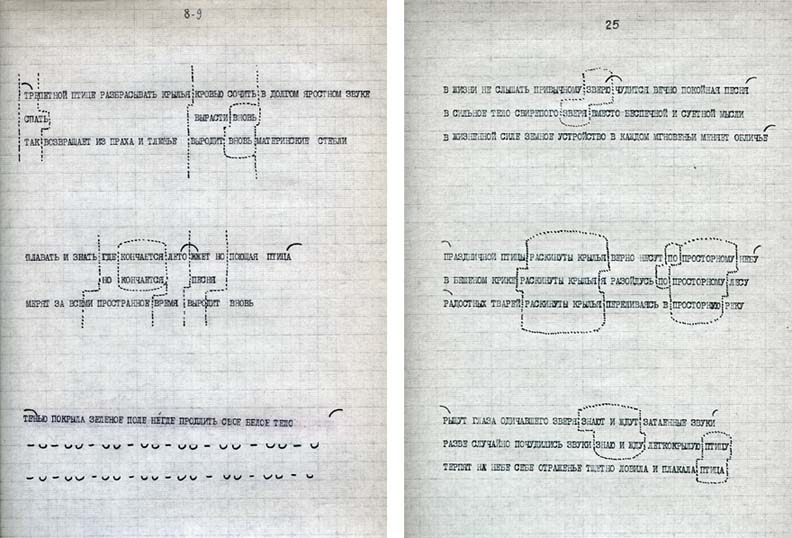 8-9
ТРЕПЕТНОЙ ПТИЦЕ РАЗБРАСЫВАТЬ КРЫЛЬЯ КРОВЬЮ СОЧИТЬ В ДОЛГОМ ЯРОСТНОМ ЗВУКЕ
СПАТЬ ВЫРАСТИ ВНОВЬ
ТАК ВОЗВРАЩАЕТ ИЗ ПРАХА И ТЛЕНЬЕ ВЫРОДИТ ВНОВЬ МАТЕРИНСКИЕ СТЕБЛИ
ПЛАВАТЬ И ЗНАТЬ ГДЕ КОНЧАЕТСЯ ЛЕТО ЖЖЕТ НО ПОЮЩАЯ ПТИЦА
НО КОНЧАЕТСЯ ПЕСНЯ
МЕРЯТ ЗА ВСЕМИ ПРОСТРАННОЕ ВРЕМЯ ВЫРОДИТ ВНОВЬ
ТЕНЬЮ ПОКРЫЛА ЗЕЛЕНОЕ ПОЛЕ НЕГДЕ ПРОДЛИТЬ СВОЕ БЕЛОЕ ТЕЛО
25
В ЖИЗНИ НЕ СЛЫШАТЬ ПРИВЫЧНОМУ ЗВЕРЮ ЧУДИТСЯ ВЕЧНО ПОКОЙНАЯ ПЕСНЯ
В СИЛЬНОЕ ТЕЛО СВИРЕПОГО ЗВЕРЯ ВМЕСТО БЕСПЕЧНОЙ И СУЕТНОЙ МЫСЛИ
В ЖИЗНЕННОЙ СИЛЕ ЗЕМНОЕ УСТРОЙСТВО В КАЖДОМ МГНОВЕНЬИ МЕНЯЕТ ОБЛИЧЬЕ
ПРАЗДНИЧНОЙ ПТИЦЫ РАСКИНУТЫ КРЫЛЬЯ ВЕРНО НЕСУТ ПО ПРОСТОРНОМУ НЕБУ
В БЕШЕНОМ КРИКЕ РАСКИНУТЫ КРЫЛЬЯ Я РАЗОЙДУСЬ ПО ПРОСТОРНОМУ ЛЕСУ
РАДОСТНЫХ ТВАРЕЙ РАСКИНУТЫ КРЫЛЬЯ ПЕРЕЛИВАЯСЬ В ПРОСТОРНУЮ РЕКУ
РЫЩУТ ГЛАЗА ОДИЧАВШЕГО ЗВЕРЯ ЗНАЮТ И ЖДУТ ЗАТАЕННЫЕ ЗВУКИ
РАЗВЕ СЛУЧАЙНО ПОЧУДИЛИСЬ ЗВУКИ ЗНАЮ И ЖДУ ЛЕГКОКРЫЛУЮ ПТИЦУ
ТЕРПЯТ НА НЕБЕ СЕБЕ ОТРАЖЕНЬЕ ТЩЕТНО ЛОВИЛА И ПЛАКАЛА ПТИЦА